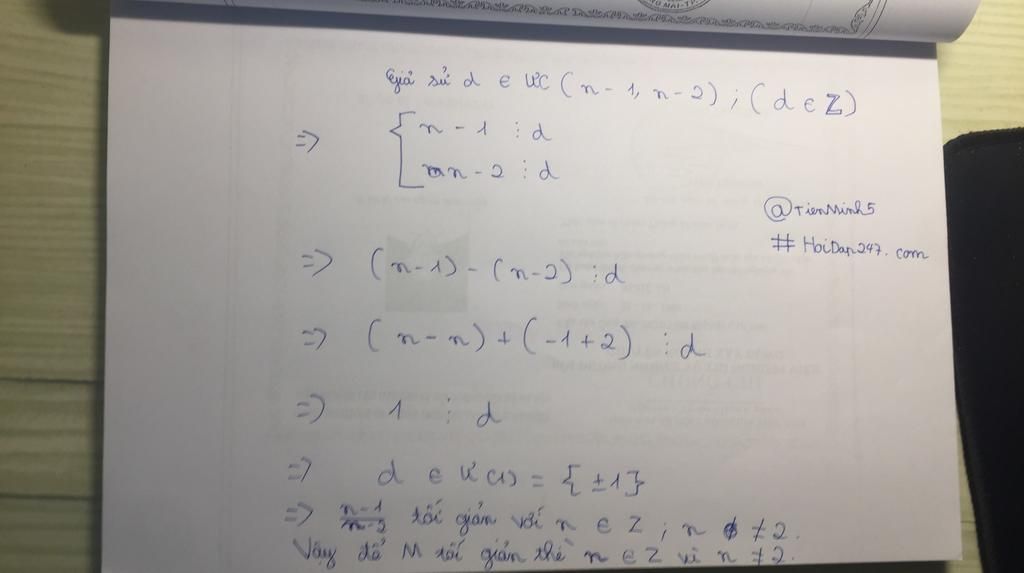 NG MAI-T
Giả sử d ∈ ƯC (n - 1, n - 2) ; (d ∈ Z)
=> { n - 1 ⋮ d
n - 2 ⋮ d
@TienMinh5
# HoiDap247.com
=> (n-1) - (n-2) ⋮ d
=> (n - n) + (-1 + 2) ⋮ d
=> 1 ⋮ d
=> d ∈ Ư(1) = {±1}
=> n-1/n-2 tối giản với n ∈ Z ; n ≠ 2.
Vậy để M tối giản thì n ∈ Z vì n ≠ 2.